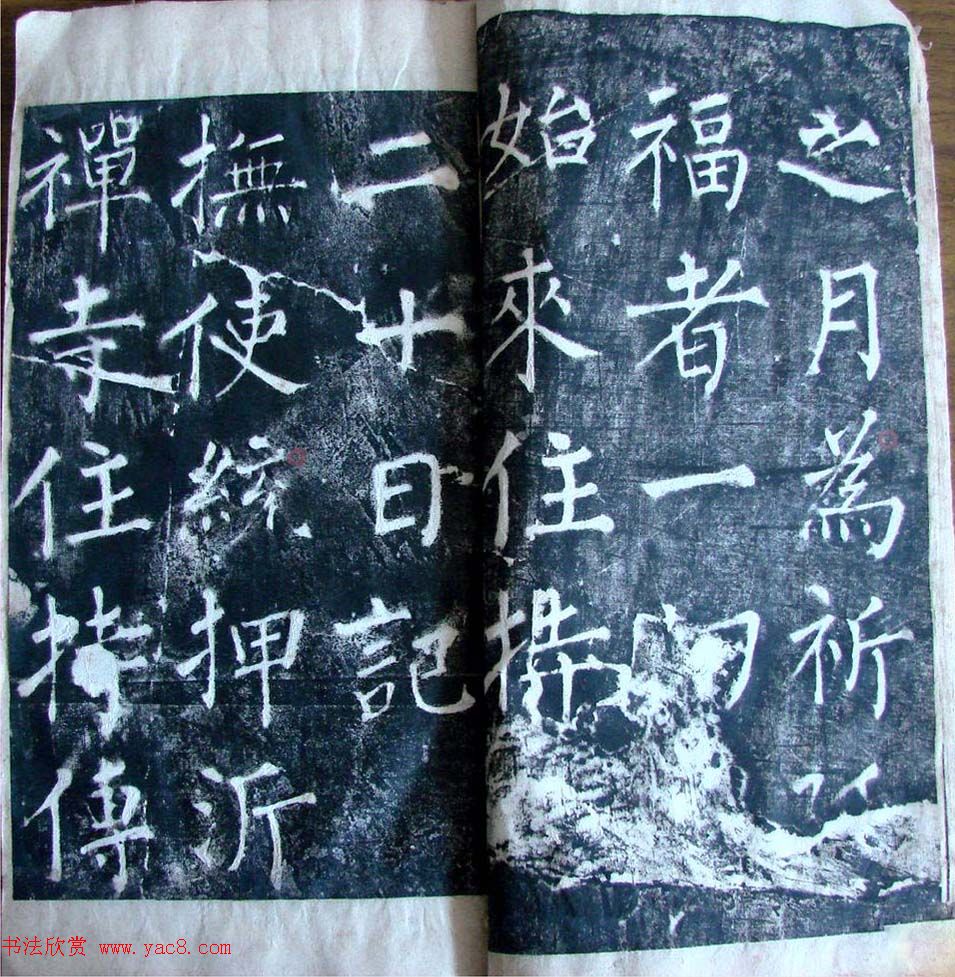 之月為祈
福者一
始來住
二十日記
撫使綂押沂
禪寺住持傳
书法欣赏 www.yac8.com